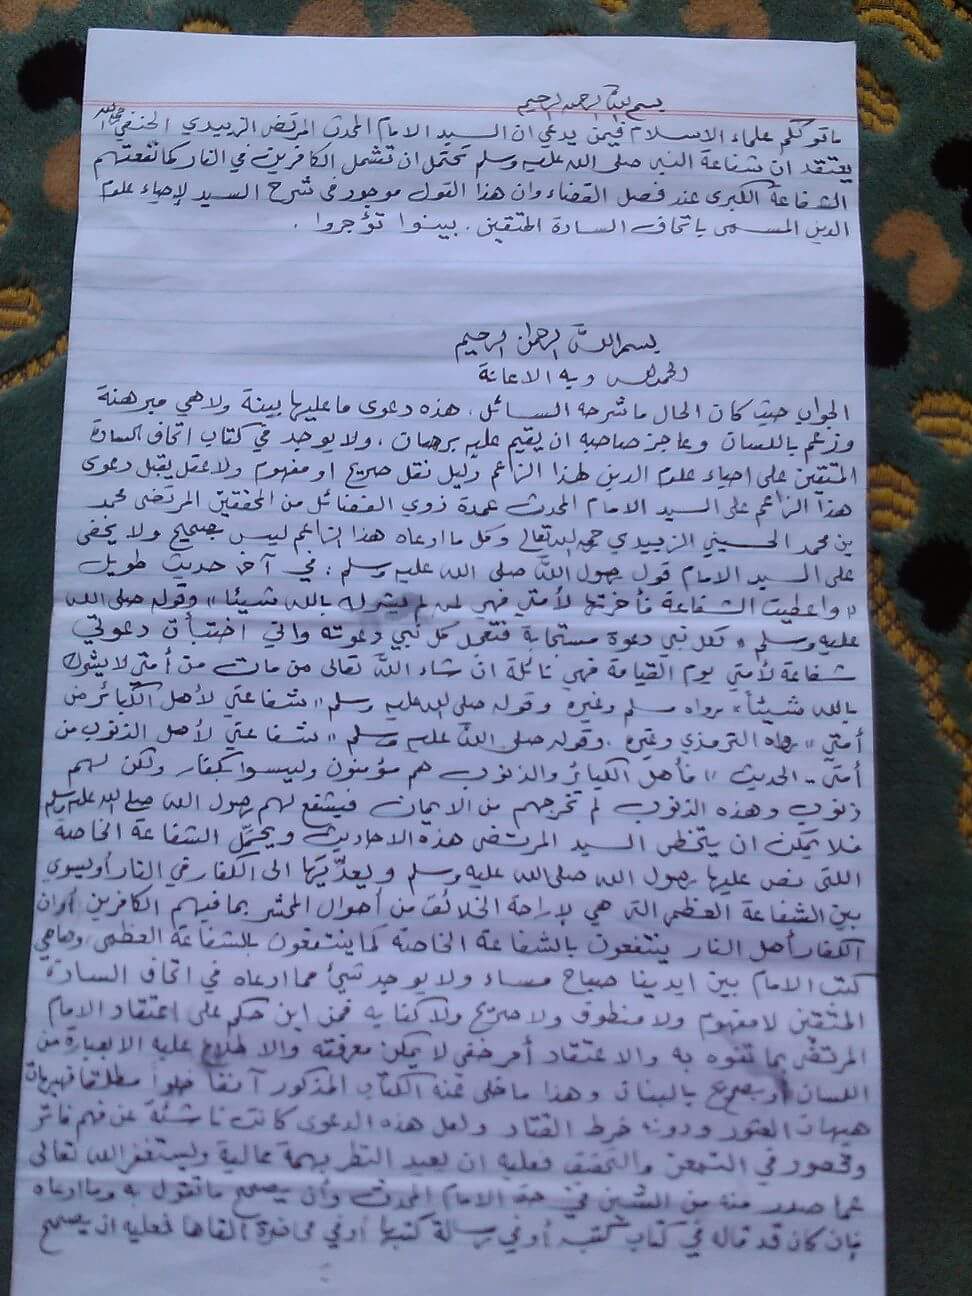 بسم الله الرحمن الرحيم
ما قولكم علماء الاسلام فيمن يدعي ان السيد الامام المحدث المرتضى الزبيدي الحنفي رحمه الله
يعتقد ان شفاعة النبي صلى الله عليه وسلم تحتمل ان تشمل الكافرين في النار كما نفعتهم
الشفاعة الكبرى عند فصل القضاء وان هذا القول موجود في شرح السيد لإحياء علوم
الدين المسمى باتحاف السادة المتقين . بينوا تؤجروا .
بسم الله الرحمن الرحيم
الحمد لله وبه الاعانة
الجواب حيث كان الحال ما شرحه السائل . هذه دعوى ما عليها بينة ولا هي مبرهنة
وزعم باللسان وعاجز صاحبه ان يقيم عليه برهان . ولا يوجد في كتاب اتحاف السادة
المتقين على احياء علوم الدين لهذا الزاعم دليل نقل صريح او مفهوم ولا عقل يقبل دعوى
هذا الزاعم على السيد الامام المحدث عمدة ذوي الفضائل من المحققين المرتضى محمد
بن محمد الحسيني الزبيدي رحمه الله تعالى وكل ما ادعاه هذا الزاعم ليس بصحيح ولا يخفى
على السيد الامام قول رسول الله صلى الله عليه وسلم : في آخر حديث طويل
« واعطيت الشفاعة فأخرتها لأمتي فهي لمن لم يشرك بالله شيئا » وقوله صلى الله
عليه وسلم « لكل نبي دعوة مستجابة فتعجل كل نبي دعوته واني اختبأت دعوتي
شفاعة لأمتي يوم القيامة فهي نائلة ان شاء الله تعالى من مات من أمتي لا يشرك
بالله شيئاً » رواه مسلم وغيره وقوله صلى الله عليه وسلم « شفاعتي لأهل الكبائر من
أمتي » رواه الترمذي وغيره . وقوله صلى الله عليه وسلم « شفاعتي لأهل الذنوب من
أمتي - الحديث » فأهل الكبائر والذنوب هم مؤمنون وليسوا كفار ولكن لهم
ذنوب وهذه الذنوب لم تخرجهم من الايمان فيشفع لهم رسول الله صلى الله عليه وسلم
فلا يمكن ان يتخطى السيد المرتضى هذه الاحاديث ويحمّل الشفاعة الخاصة
اللتي نص عليها رسول الله صلى الله عليه وسلم ويعدّيَها الى الكفار في النار أو يسوي
بين الشفاعة العظمى التي هي لإراحة الخلائق من أحوال المحشر بما فيهم الكافرين أو ان
الكفار أهل النار ينتفعون بالشفاعة الخاصة كما ينتفعون بالشفاعة العظمى وها هي
كتب الامام بين ايدينا صباح مساء ولا يوجد شيئ مما ادعاه في اتحاف السادة
المتقين لا مفهوم ولا منطوق ولا صريح ولا كناية فمن اين حكم على اعتقاد الامام
المرتضى بما تفوه به والاعتقاد أمر خفي لا يمكن معرفته والاطلاع عليه الا بعبارة من
اللسان او بصريح بالبنان وهذا ما خلى عنه الكتاب المذكور آنفا خلوا مطلقا فهيهات
هيهات العثور ودونه خرط القتاد ولعل هذه الدعوى كانت ناشئة عن فهم فاتر
وقصور في التمعن والتحقيق فعليه ان يعيد النظر بهمة عالية وليستغفر الله تعالى
عما صدر منه من الشين في حق الامام المحدث وأن يصحح ما تقول به وما ادعاه
فإن كان قد قاله في كتاب كتبه أو في رسالة كتبها أو في محاضرة القاها فعليه ان يصحح